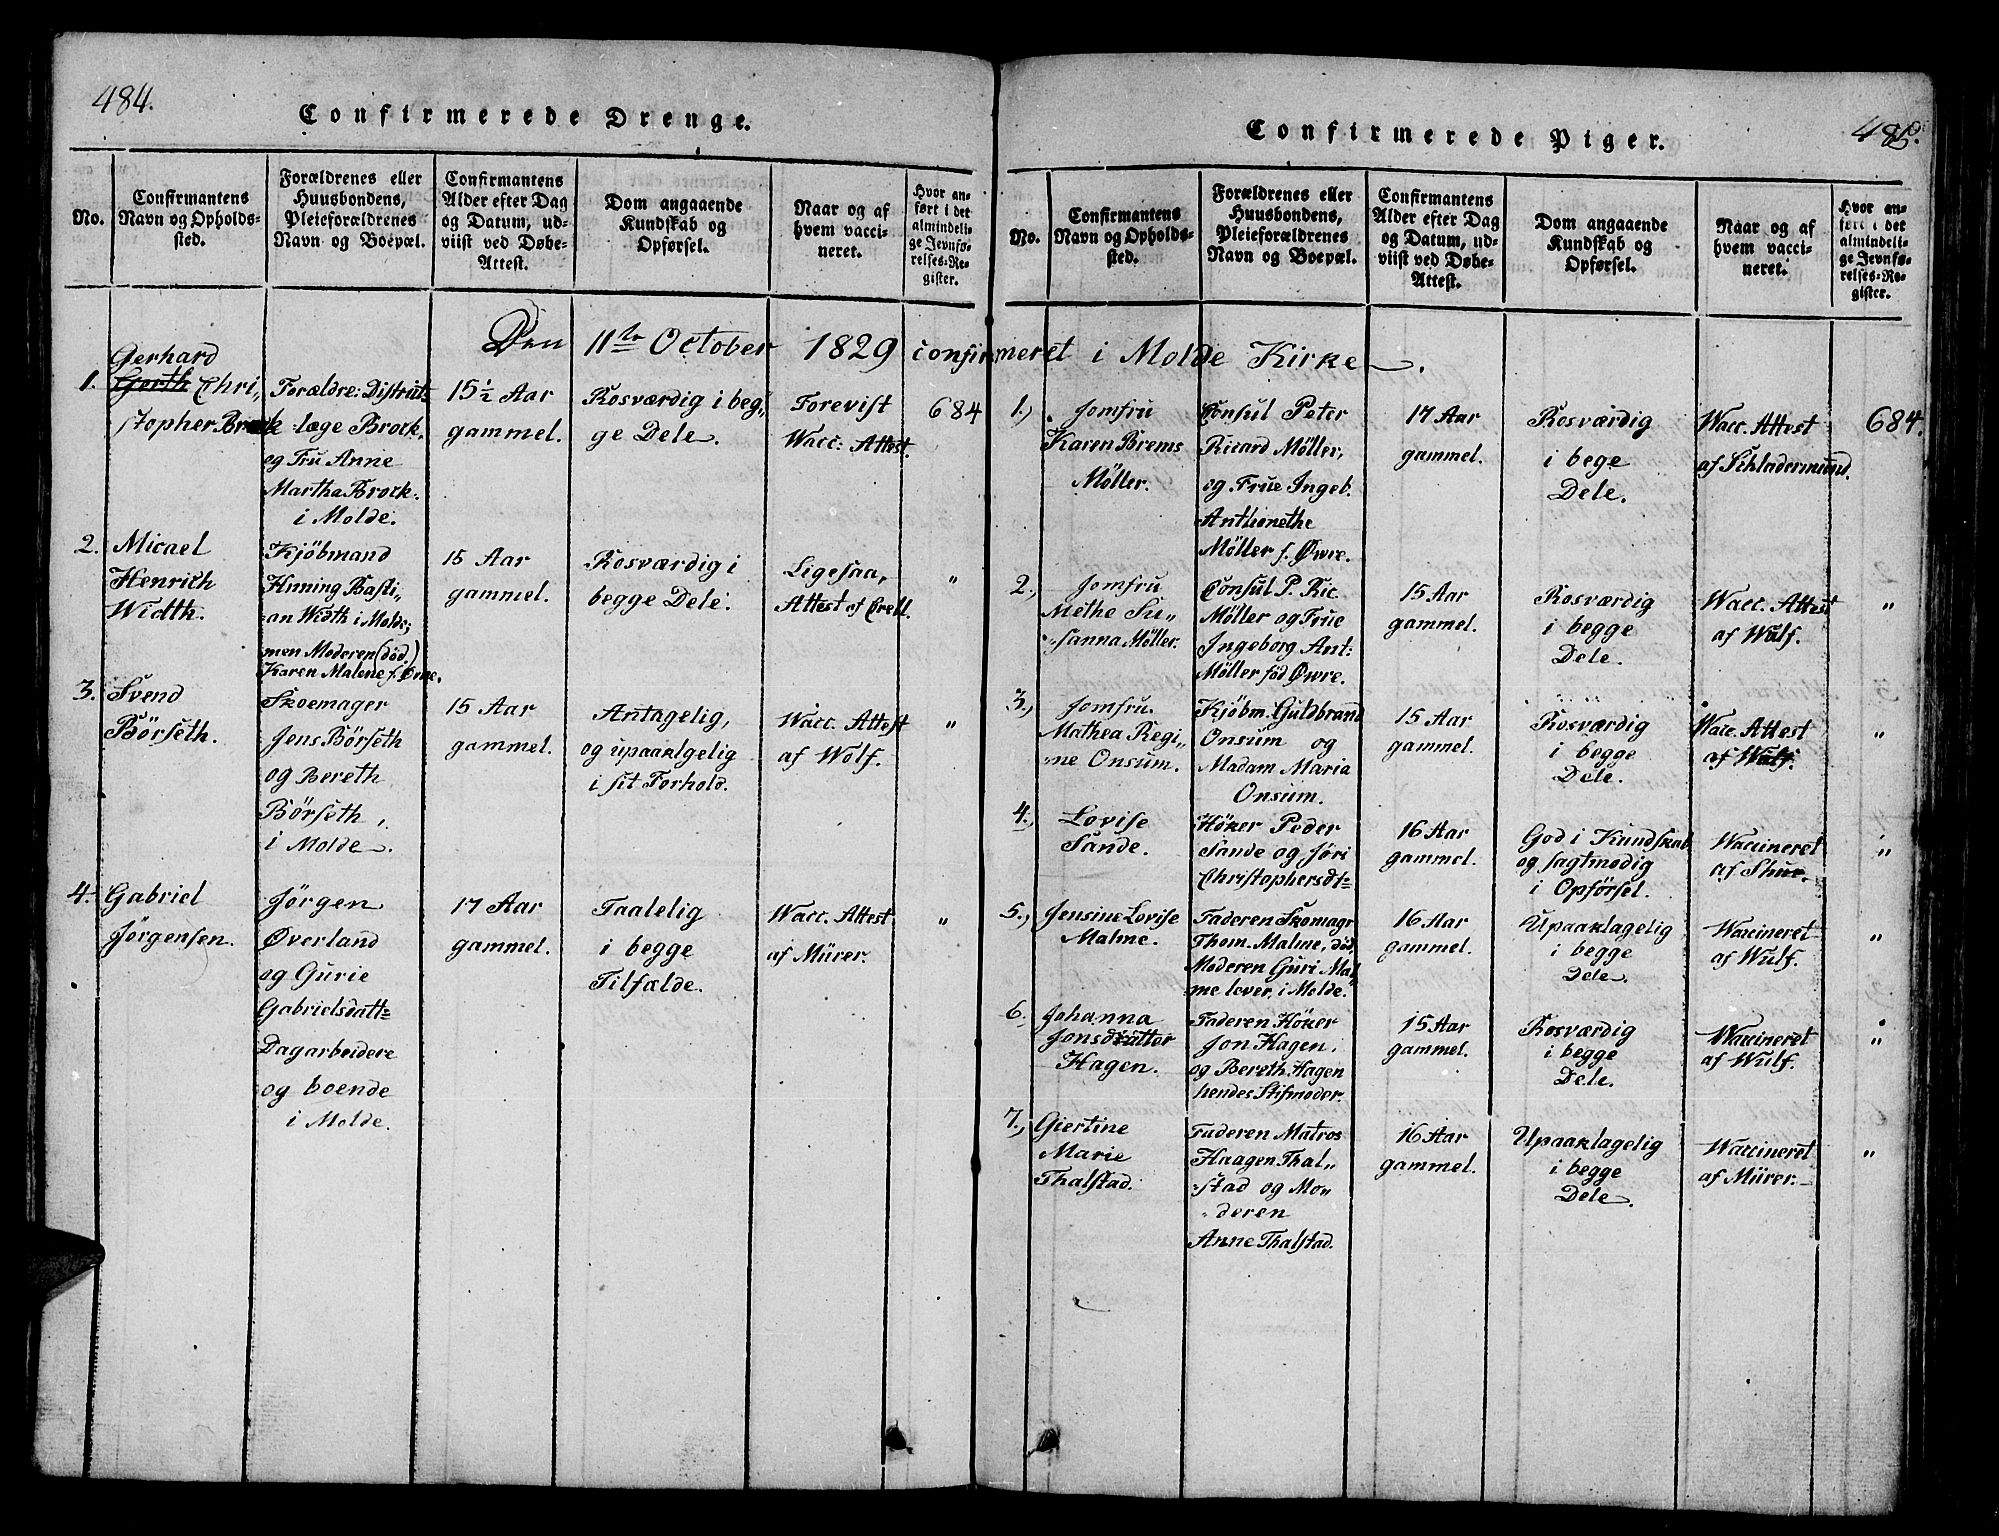 484.
Confirmerede Drenge.
No.
Confirmantens
Navn og Opholds-
sted.
Forældrenes eller
Huusbondens,
Pleieforældrenes
Navn og Boepæl.
Confirmantens
Alder efter Dag
og Datum, ud-
viist ved Døbe-
Attest.
Dom angaaende
Kundskab og
Opførsel.
Naar og af
hvem vacci-
neret.
Hvor an-
ført i det
almindeli-
ge Jevnfø-
relses-Re-
gister.
Den 11te October 1829 confirmeret i Molde Kirke.
1.
Gerhard
Gerth Chri,,
stopher Brock
Forældre: District-
læge Brock,
og Fru Anne
Martha Brock.
i Molde.
15½ Aar
gammel.
Rosværdig i beg,,
ge Dele.
Forevist
Vacc: Attest.
684
2.
Micael
Henrich
Width.
Kjøbmand
Hnning Basti,,
an Width i Molde;
men Moderen (død)
Karen Malene f. Ørne.
15 Aar
gammel.
Rosværdig i
begge Dele.
Ligesaa,
Attest af Crell.
"
3.
Svend
Börseth.
Skoemager
Jens Börseth
og Bereth
Börseth,
i Molde.
15 Aar
gammel.
Antagelig,
og upaaklgelig
i sit Forhold.
Vacc. Attest
af Wolf.
"
4.
Gabriel
Jørgensen.
Jørgen
Øverland
og Gurie
Gabrielsdatt=
Dagarbeidere
og boende
i Molde.
17 Aar
gammel.
Taalelig
i begge
Tilfælde.
Vacc. Attest
af Mürer.
"
485.
Confirmerede Piger.
No.
Confirmantens
Navn og Opholds-
sted.
Forældrenes eller
Huusbondens,
Pleieforældrenes
Navn og Boepæl.
Confirmantens
Alder efter Dag
og Datum, ud-
viist ved Døbe-
Attest.
Dom angaaende
Kundskab og
Opførsel.
Naar og af
hvem vacci-
neret.
Hvor an-
ført i det
almindeli-
ge Jevnfø-
relses-Re-
gister.
1.,
Jomfru
Karen Brems
Møller.
Consul Peter
Ricard Møller,
og Frue Ingeb.
Anthonethe
Møller f. Øwre.
17 Aar
gammel.
Rosværdig
i bege
Dele.
Vacc. Attest
af Schladermund.
684.
2.,
Jomfru
Methe Su,,
sanna Møller.
Consul P. Ric.
Møller og Frue
Ingeborg Ant:
Møller fød Øwre.
15 Aar
gammel.
Rosværdig
i begge
Dele.
Vacc. Attest
af Wulf.
"
3.,
Jomfru.
Mathea Regi,,
ne Onsum.
Kjöbm. Guldbrand
Onsum og
Madam Maria
Onsum.
15 Aar
gammel.
Rosværdig
i begge
Dele.
Vacc. Attest
af Wulf.
"
4.,
Lovise
Sande.
Höker Peder
Sande og Jøri
Christophersdt=
16 Aar
gammel.
God i Kundskab
og sagtmodig
i Opførsel.
Vaccineret
af Shur.
"
5.,
Jensine Lovise
Malme.
Faderen Skomagr
Thom. Malme, død,
Moderen Guri Mal
me lever, i Molde.
16 Aar
gammel.
Upaaklagelig
i begge
Dele.
Vaccineret
af Wulf.
"
6.,
Johanna
Jonsdatter
Hagen.
Faderen Höker
Jon Hagen,
og Bereth Hagen
hendes Stifmoder.
15 Aar
gammel.
Rosværdig
i begge
Dele.
Vaccineret
af Wulf.
"
7.,
Giertine
Marie
Thalstad.
Faderen Matros
Haagen Thal,,
stad og Mo,,
deren
Anne Thalstad.
16 Aar
gammel.
Upaaklagelig
i begge
Dele.
Vaccineret
af Mürer.
"